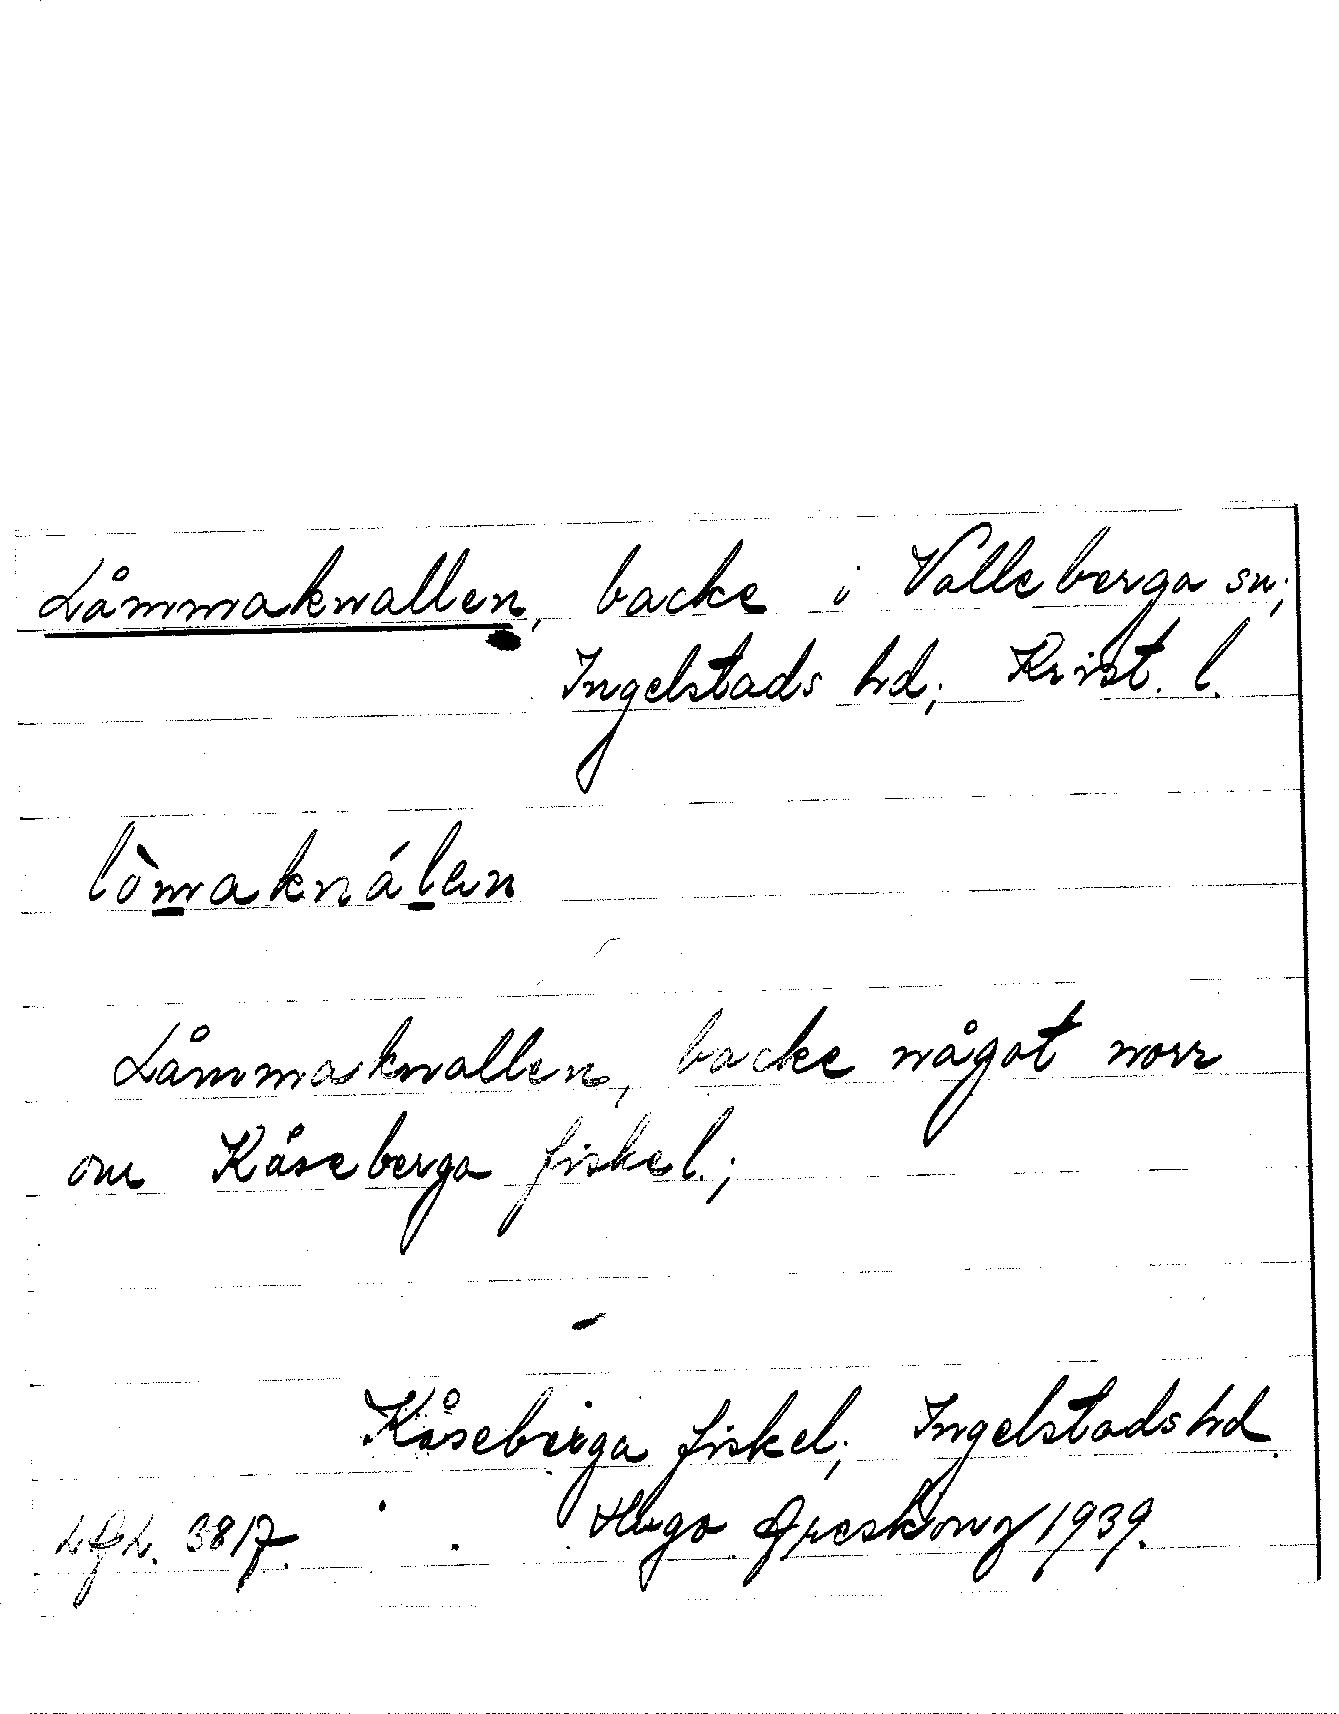 Låmmaknallen, backe i Valleberga sn;
Ingelstads hd; Krist. l.
lòmaknálen
Låmmaknallen, backe något norr
om Kåseberga fiskel.;
Kåseberga fiskel; Ingelstads hd.
3817. Hugo Areskoug 1939.